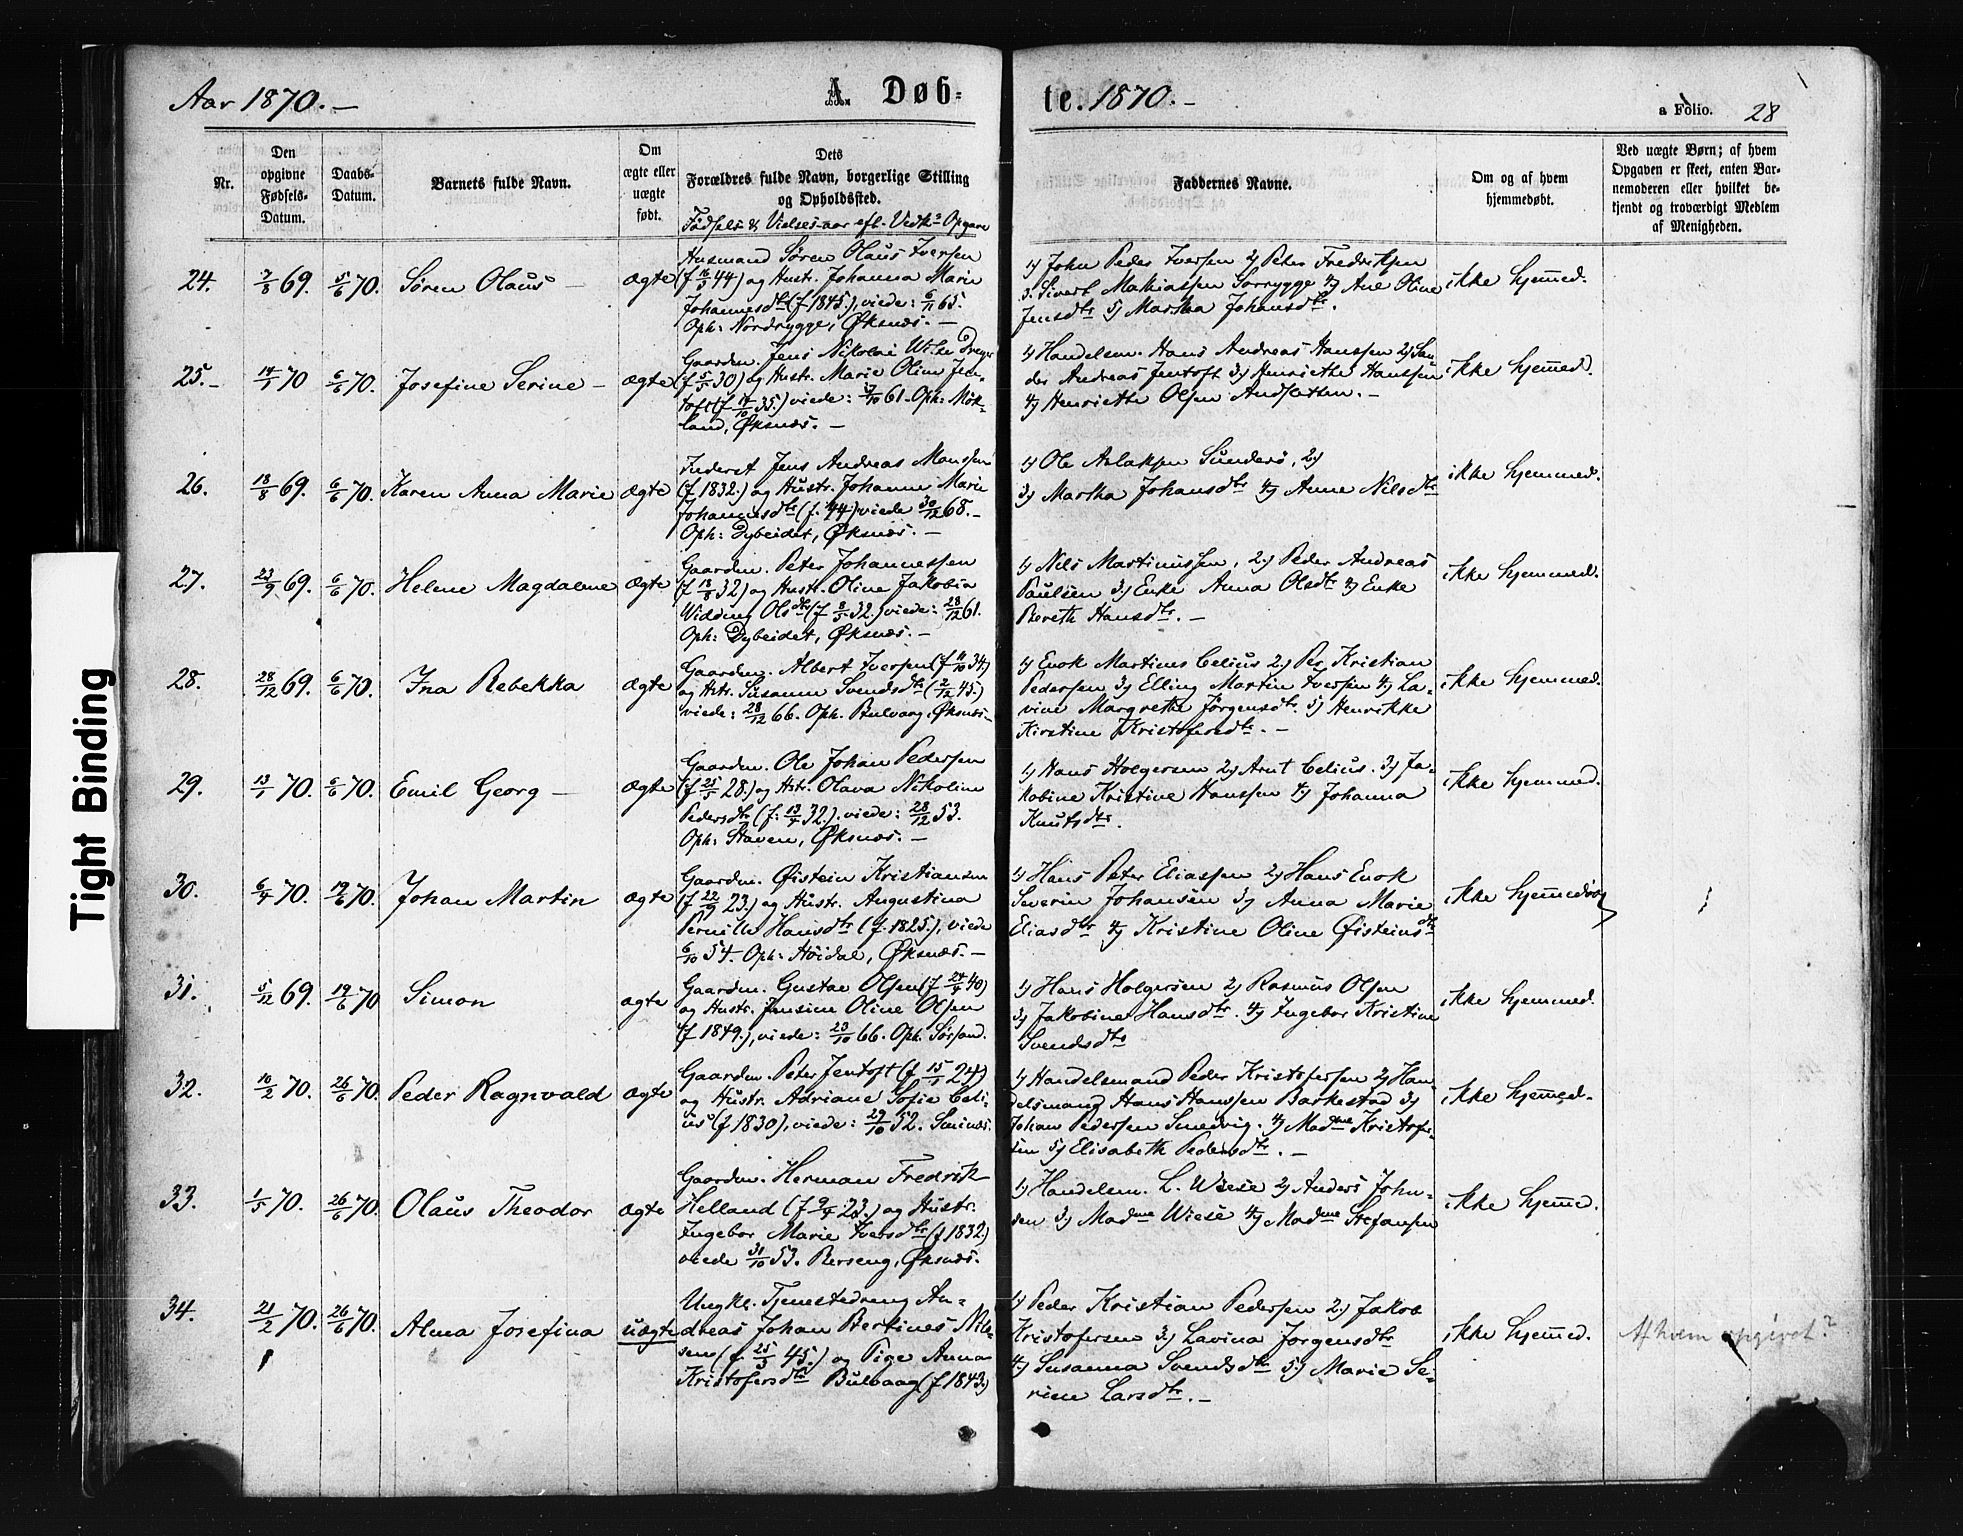 Aar 1870. —
A Døb-
te. 1870. -
a Folio. 28
Nr.
Den opgivne Fødsels-Datum.
Daabs-Datum.
Barnets fulde Navn.
Om ægte eller uægte født.
Dets Forældres fulde Navn, borgerlige Stilling og Opholdssted.
Fødsels & Vielsesaar efl. Vedk.s Opgave
Faddernes Navne.
Om og af hvem hjemmedøbt.
Ved uægte Børn; af hvem Opgaven er skeet, enten Barnemoderen eller hvilket bekjendt og troværdigt Medlem af Menigheden.
24. 7/8 69. 5/6 70. Søren Olaus — ægte
Husmand Søren Olaus Iversen
(f 16/5 44) og Hustr. Johanna Marie
Johannesdtr (f 1845), viede: 6/11 65.
Oph: Nordrygge, Øksnæs. —
1) John Peder Iversen 2) Peter Fredriksen
3. Sivert Mathiassen Sørrygge 4) Ane Oline
Jensdtr 5) Martha Johansdtr.
ikke hjemmed.
25. 14/1 70 6/6 70. Josefine Serine — ægte
Gaardm. Jens Nikolai Dreyer
(f 5/5 30) og Hustr. Marie Oline Jen-
toft (f 14/10 35.) viede: 7/10 61. Oph: Mök-
land, Øksnæs. —
1) Handelsm. Hans Andreas Hanssen 2) San-
der Andreas Jentoft 3) Henriethe Hanssen
4) Henriethe Olsen Andsletten. —
ikke hjemmed.
26. 18/8 69. 6/6 70. Karen Anna Marie ægte
Inderst Jens Andreas Monssen
(f 1832.) og Hustr. Johanne Marie
Johannesdtr (f. 44) viede 30/12 68. —
Oph: Dybeidet, Øksnæs. —
1) Ole Aslaksen Sunderö, 2)
3) Martha Johansdtr 4) Anne Nilsdtr
ikke hjemmed.
27. 23/9 69. 6/6 70. Helene Magdalene ægte
Gaardm. Peter Johannessen
(f 18/8 32) og Hustr. Oline Jakobia
Widding Olsdtr (f 8/5 32.) viede: 28/12 61.
Oph: Dybeidet, Øksnæs. —
1) Nils Martinussen, 2) Peder Andreas
Paulsen 3) Enke Anna Olsdtr 4) Enke
Bereth Hansdtr. —
ikke hjemmed.
28. 28/12 69. 6/6 70. Ina Rebekka ægte
Gaardm. Albert Iversen (f 11/10 34)
og Hstr. Susanne Svendsdtr (2/12 45.)
viede: 28/12 66. Oph. Bulvaag, Øksnæs —
1) Enok Martines Celius 2) Per Kristian
Pedersen 3) Elling Martin Iversen 4) La-
vine Margrethe Jörgensdtr. 5) Henrikke
Kirstine Kristofersdtr. —
ikke hjemmed.
29. 13/1 70. 6/6 70. Emil Georg — ægte
Gaardm. Ole Johan Pedersen
(f 25/5 28.) og Hstr. Olava Nikoline
Pedersdtr (f: 13/4 32.) viede: 28/12 53.
Oph: Staven, Øksnæs. —
1) Hans Holgersen 2) Arnt Celius. 3) Ja-
kobine Kristine Hanssen 4) Johanna
Knutsdtr.
ikke hjemmed.
30. 6/4 70. 19/6 70. Johan Martin ægte
Gaardm. Øistein Kristiansen
(f 22/9 23.) og Hustr. Augustina
Pernille Hansdtr (f. 1825.), viede
6/10 54. Oph: Höidal, Øksnæs. —
1) Hans Peter Eliassen 2) Hans Enok
Severin Johansen 3) Anna Marie
Eliasdtr 4) Kristine Oline Øisteinsdtr
ikke hjemmed.
31. 5/12 69. 19/6 70 Simon ægte
Gaardm. Gustav Olsen (f 24/4 40)
og Hustr. Jensine Oline Olsen
(f 1849.), viede: 23/10 66. Oph. Sörsand.
1) Hans Holgersen 2) Rasmus Olsen
3) Jakobine Hansdtr. 4) Ingebor Kristine
Svendsdtr
ikke hjemmed.
32. 10/2 70. 26/6 70. Peder Ragnvald ægte
Gaardm. Peter Jentoft (f 15/1 24)
og Hustr. Adriane Sofie Celi-
us (f 1830), viede: 29/10 52. Smines.
1) Handelsmand Peder Kristofersen 2) Han-
delsmand Hans Hanssen Barkestad 3)
Johan Pedersen Smedvig. 4) Madme Kristofer-
sen 5) Elisabeth Pedersdtr. —
ikke hjemmed.
33. 1/5 70. 26/6 70. Olaus Theodor ægte
Gaardm. Herman Fredrik
Helland (f 9/4 23.) og Hustr.
Ingebor Marie Iversdtr (f 1832.)
viede 31/10 53. Rerseng, Øksnæs.
1) Handelsm. L. Wiese 2) Anders John-
sen 3) Madme Wiese 4) Madme Stefansen
ikke hjemmed.
34. 21/2 70. 26/6 70. Alma Josefina uægte
Ungkl. Tjenestedreng An-
dreas Johan Bertines Nil-
sen (f. 25/5 45.) og Pige Anna
Kristofersdtr Bulvaag (f 1843.)
1) Peder Kristian Pedersen 2) Jakob
Kristofersen 3) Lavina Jörgensdtr
4) Susanna Svendsdtr 5) Marie Se-
rine Larsdtr. —
ikke hjemmed.
Af hvem opgivet?
Tight Binding